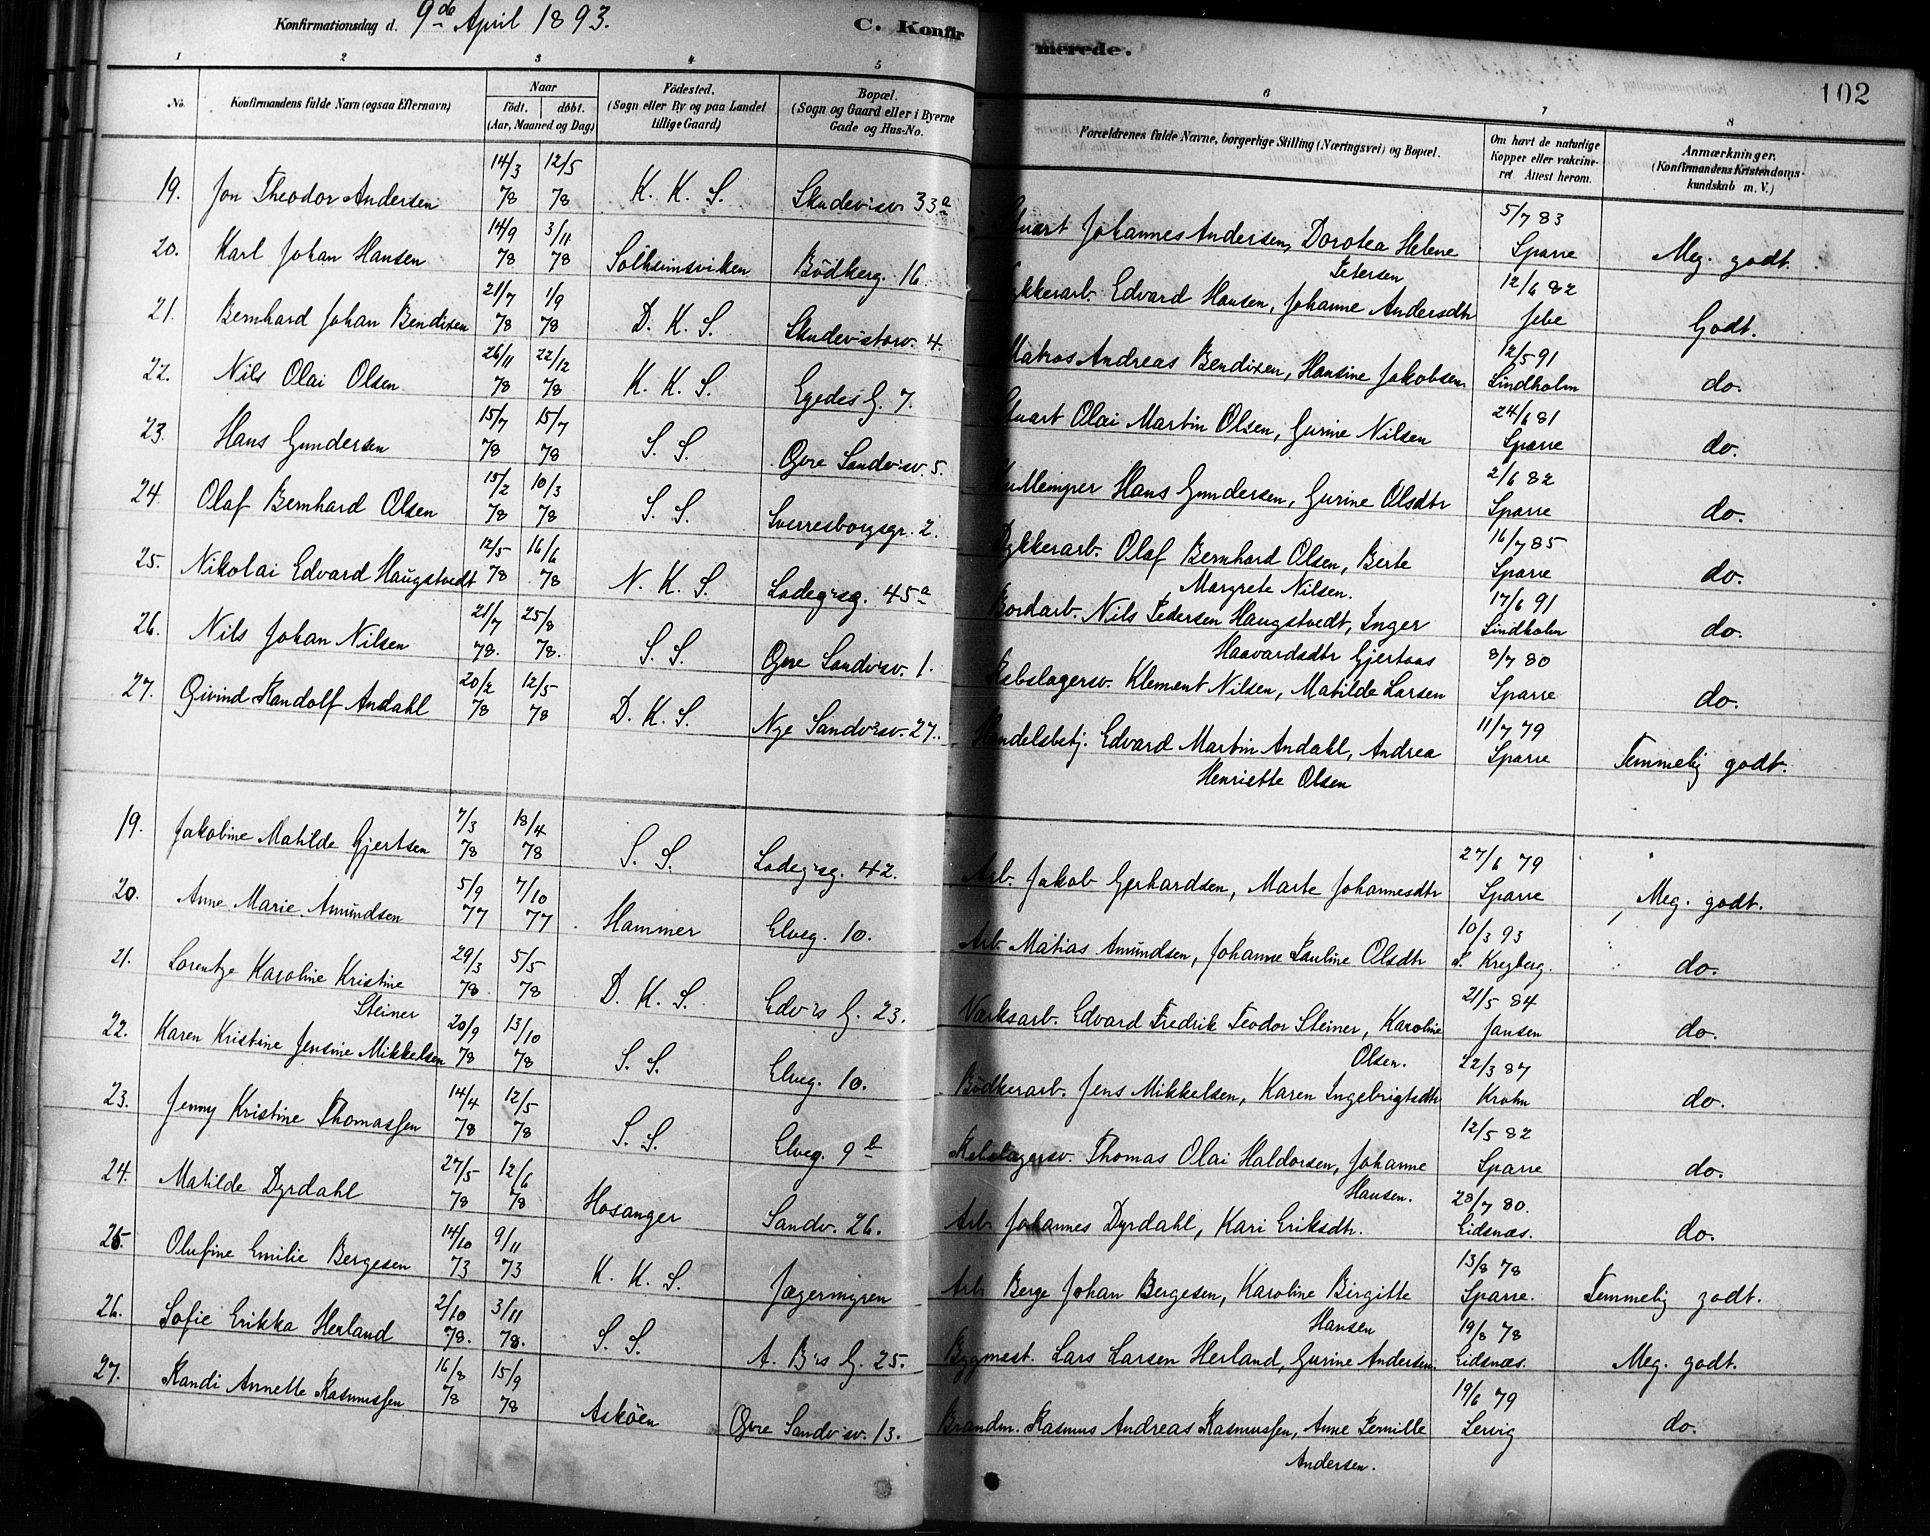 Konfirmationsdag d. 9de April 1893. C. Konfirmerede. 102
1 2 3 4 5 6 7 8
No. Konfirmandens fulde Navn (ogsaa Efternavn) Naar födt. döbt. (Aar, Maaned og Dag) Födested. (Sogn eller By og paa Landet tillige Gaard) Bopæl. (Sogn og Gaard eller i Byerne Gade og Hus-No. Forældrenes fulde Navne, borgerlige Stilling (Næringsvei) og Bopæl. Om havt de naturlige Kopper eller vakcineret Attest herom. Anmærkninger. (Konfirmandens Kristendomskundskab m. V.)
19. Jon Theodor Andersen 14/3 78 12/5 78 K. K. S. Skudevisv. 33a Johannes Andersen, Dorotea Helene Petersen 5/7 83 Sparre Meg. godt.
20. Karl Johan Hansen 14/9 78 3/11 78 Solheimsviken Bödkerg. 16. Edvard Hansen, Johanne Andersdtr 12/6 82 Jebe Godt.
21. Bernhard Johan Bendixen 21/7 78 1/9 78 D. K. S. Skudevistorv. 4. Matros Andreas Bendixen, Hansine Jakobsen 12/5 91 Lindholm do.
22. Nils Olai Olsen 26/11 78 22/12 78 K. K. S. Egedes G. 7. Olai Martin Olsen, Gurine Nilsen 24/6 81 Sparre do.
23. Hans Gundersen 15/7 78 15/7 78 S. S. Øvre Sandvisv. 5. Hans Gundersen, Gurine Olsdtr 2/6 82 Sparre do.
24. Olaf Bernhard Olsen 15/2 78 10/3 78 S. S. Sverresborgsgr. 2. Dykkerarb. Olaf Bernhard Olsen, Berte Margrete Nilsen. 16/7 85 Sparre do.
25. Nikolai Edvard Haugstvedt 12/5 78 16/6 78 N. K. S. Ladegsg. 45a Bordarb. Nils Pedersen Haugstvedt, Inger Haavardsdtr Gjertaas 17/6 91 Lindholm do.
26. Nils Johan Nilsen 21/7 78. 25/8 78. S. S. Øvre Sandvisv. 1. Rebslagersv. Klement Nilsen, Matilde Larsen 8/7 80 Sparre do.
27. Øivind Randolf Andahl 20/2 78 12/5 78 D. K. S. Nye Sandvisv. 27. Handelsbetj. Edvard Martin Andahl, Andrea Henriette Olsen 11/7 79 Sparre Temmelig godt.
19. Jakobine Matilde Gjertsen 7/3 78 18/4 78 S. S. Ladegsg. 42. Arb. Jakob Gerhardsen, Marte Johannesdtr 27/6 79 Sparre Meg. godt.
20. Anne Marie Amundsen 5/9 77 7/10 77 Hammer Elveg. 10. Arb. Matias Amundsen, Johanne Pauline Olsdtr 10/3 93 do.
21. Lorentze Karoline Kristine Steiner 29/3 78 5/5 78 D. K. S. Edvis G. 23. Værksarb. Edvard Fredrik Teodor Steiner, Karoline Olsen. 21/5 84 Jansen do.
22. Karen Kristine Jensine Mikkelsen 20/9 78 13/10 78 S. S. Elveg. 10. Bödkerarb. Jens Mikkelsen, Karen Ingebrigtsdtr 22/3 87 Krohn do.
23. Jenny Kristine Thomassen 14/4 78 12/5 78 S. S. Elveg. 9b Rebslagersv. Thomas Olai Haldorsen, Johanne Hansen. 12/5 82 Sparre do.
24. Matilde Dyrdahl 27/5 78 12/6 78 Hosanger Sandv. 26. Arb. Johannes Dyrdahl, Kari Eriksdtr. 28/7 80. Eidsnæs. do.
25. Olufine Emilie Bergesen 14/10 73 9/11 73 K. K. S. Jægermyren Arb. Berge Johan Bergesen, Karoline Birgitte Hansen 13/8 78 Sparre. Temmelig godt.
26. Sofie Erikka Herland 2/10 78. 3/11 78. S. S. A. Bis G. 25. Bygmest. Lars Larsen Herland, Gurine Andersen. 19/8 78 Eidsnæs. Meg. godt.
27. Randi Annette Rasmussen 16/8 78 15/9 78 Askøen Øvre Sandvisv. 13. Brandm. Rasmus Andreas Rasmussen, Anne Pernille Andersen. 19/6 79 Lervig do.